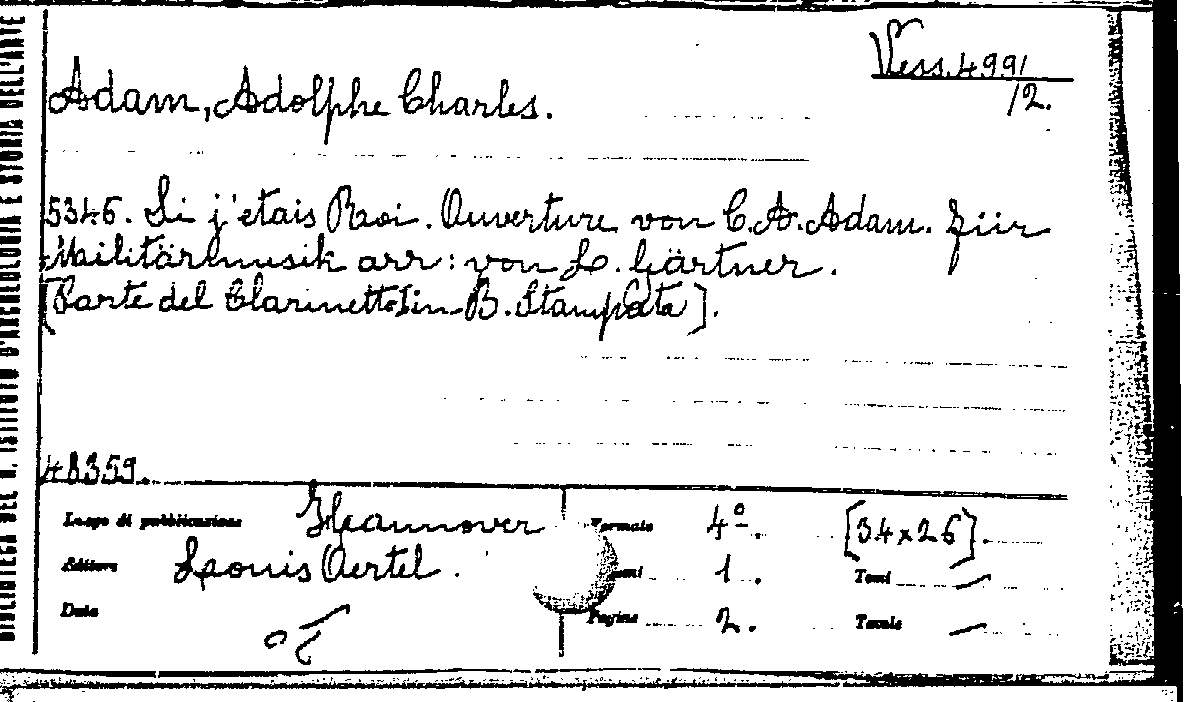 BIBLIOTECA DEL R. ISTITUTO D'ARCHEOLOGIA E STORIA DELL'ARTE
Vess. 499/
12.
Adam, Adolphe Charles.
5346. Si j'etais Roi. Ouverture von C. A. Adam. für
Militärmusik arr: von L. Gärtner.
[Parte del Clarinetto I in B. Stampata].
48359.
Luogo di pubblicazione Hannover
Editore Louis Oertel.
Data
Formato 4º. [34x26].
1. Tomi —
Pagine 2. Tavole —